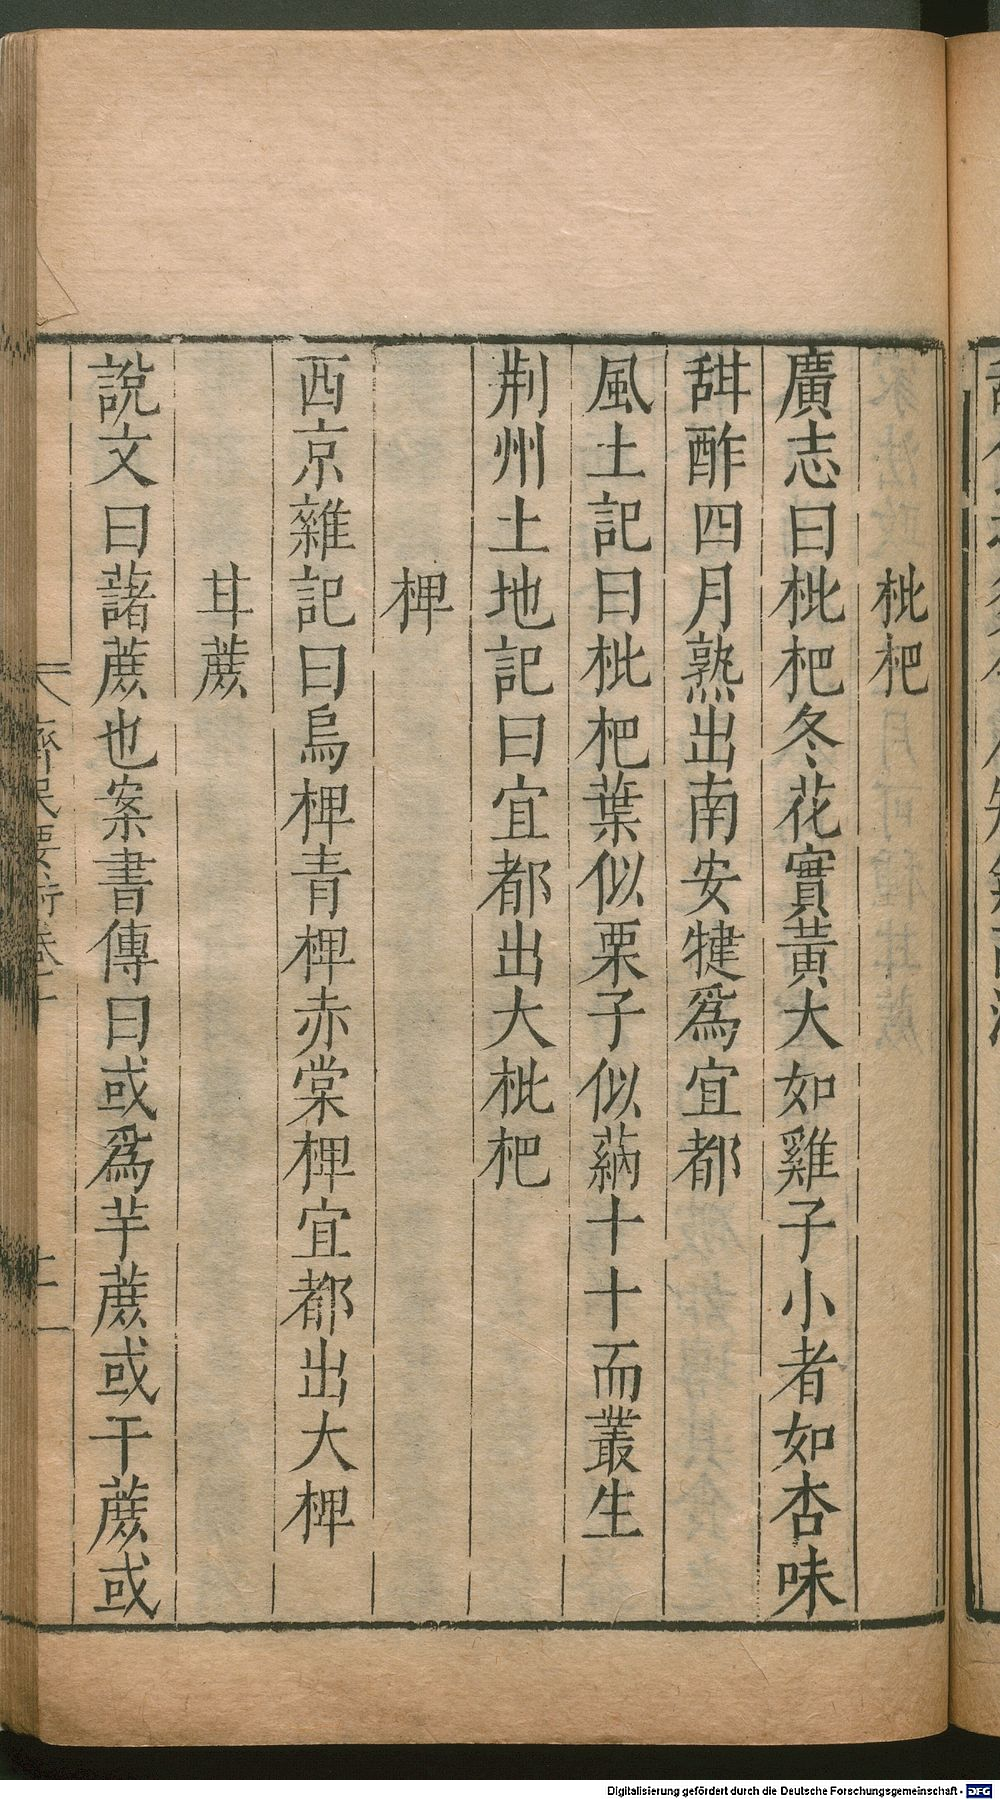 枇杷
廣志曰枇杷冬花實黃大如雞子小者如杏味
甜酢四月熟出南安犍爲宜都
風土記曰枇杷葉似栗子似蒳十十而叢生
荆州土地記曰宜都出大枇杷
椑
西京雜記曰烏椑青椑赤棠椑宜都出大椑
甘蔗
說文曰藷蔗也案書傳曰或爲芋蔗或干蔗或
齊民要術卷十
Digitalisierung gefördert durch die Deutsche Forschungsgemeinschaft - DFG